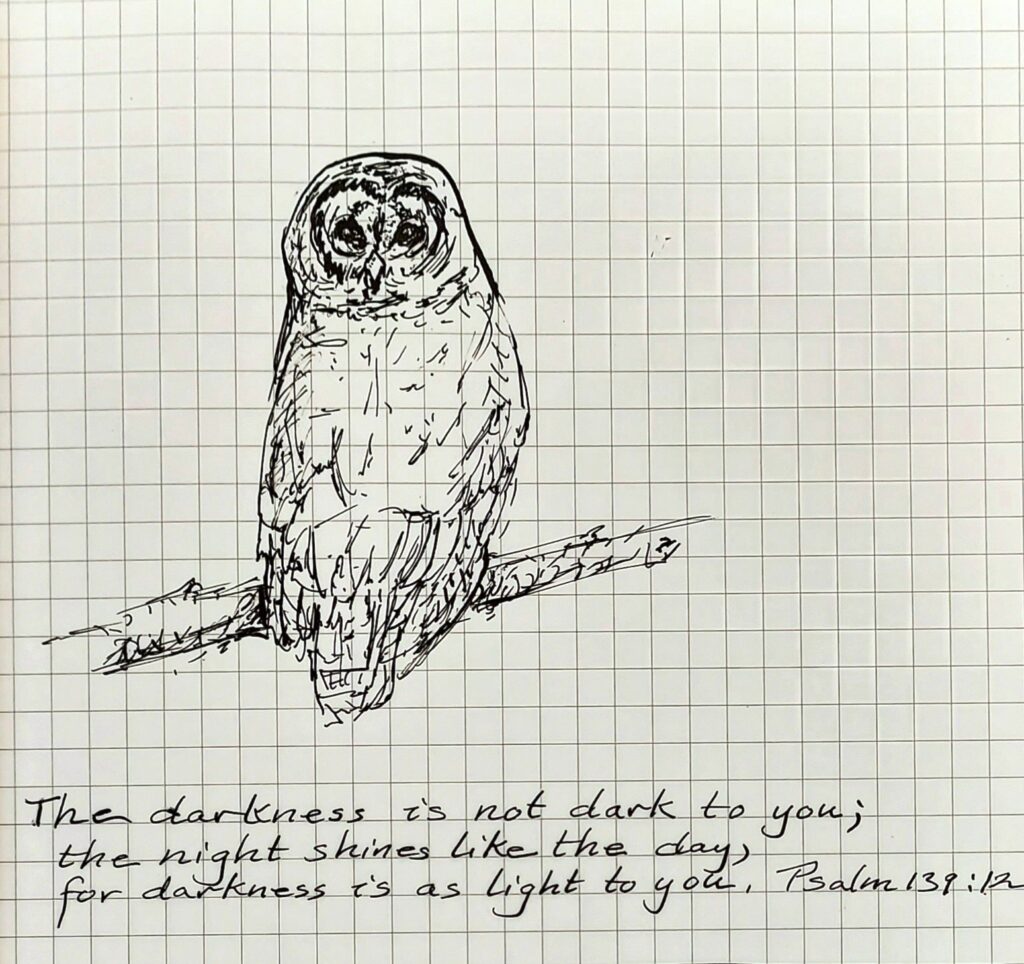 The darkness is not dark to you;
the night shines like the day,
for darkness is as light to you. Psalm 139:12